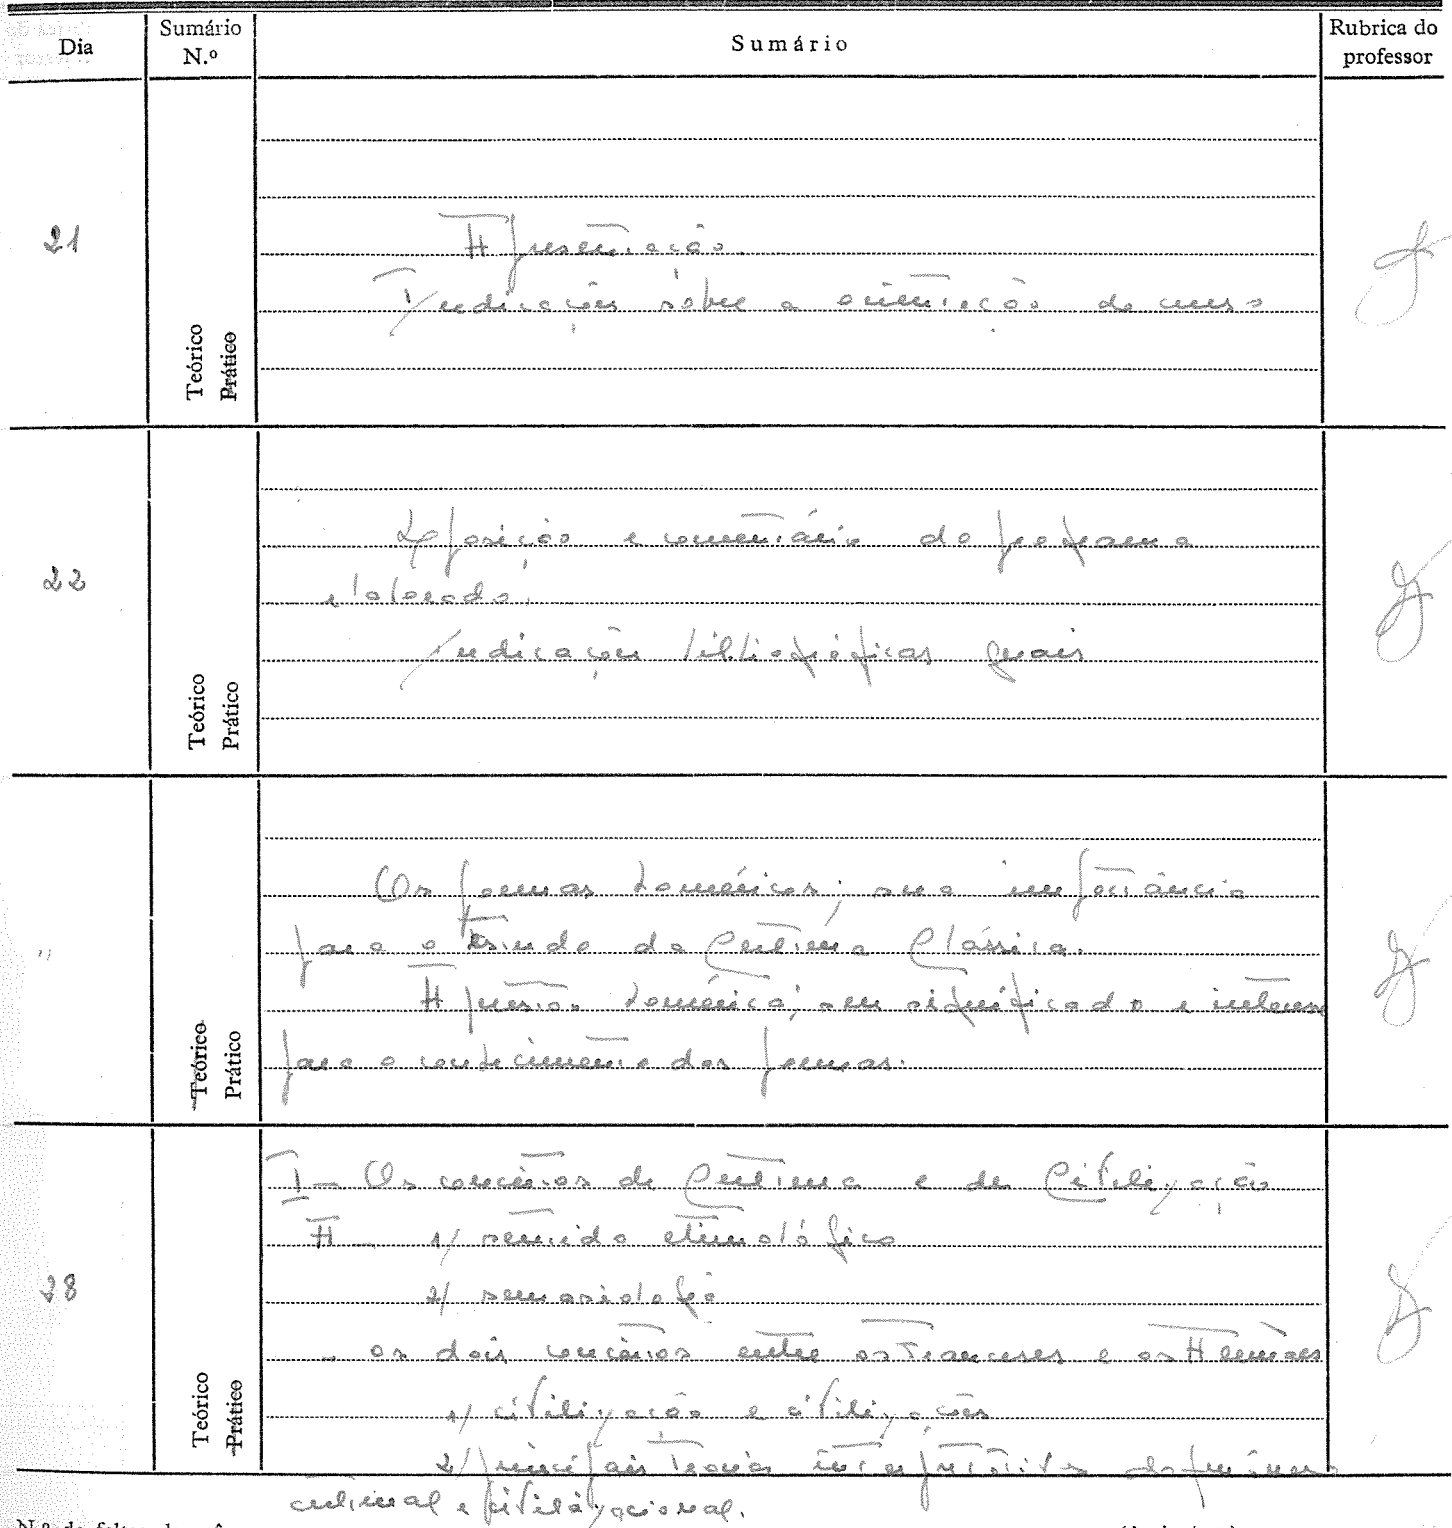 Dia
Sumário
N.º
Sumário
Rubrica do
professor
21
Teórico
Prático
Apresentação.
Indicações sobre a orientação do curso
22
Teórico
Prático
Exposição e comentário do programa
elaborado.
Indicações bibliográficas gerais
"
Teórico
Prático
Os poemas homéricos; sua importância
para o Estudo da Cultura Clássica.
A questão homérica; seu significado e interesse
para o conhecimento dos poemas.
28
Teórico
Prático
I - Os conceitos de Cultura e de Civilização
A - 1/ sentido etimológico
2/ semasiologia
- os dois conceitos entre os Franceses e os Alemães
1/ civilização e civilizações
2/ principais Teorias interpretativas do fenómeno
cultural e civilizacional.